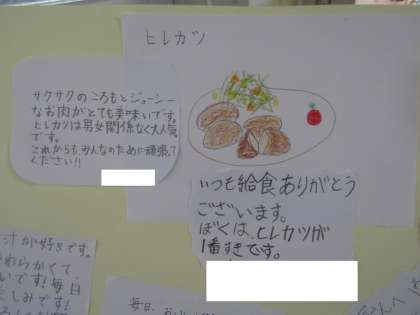 ヒレカツ
サクサクのころもとジューシー
なお肉がとても美味いです。
ヒレカツは男女関係なく大人気
です。
これからも、みんなのために頑張って
ください!!
いつも給食ありがとう
ございます。
ぼくは、ヒレカツが
1番すきです。
汁が好きです。
わらかくて、
いです!毎日
しみです!
毎日